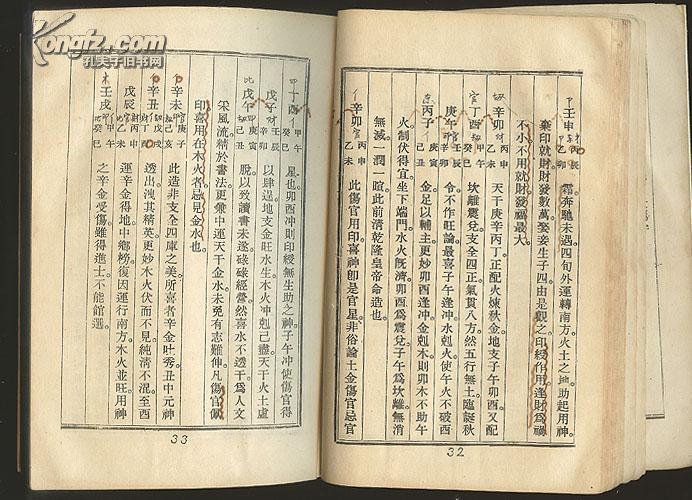 Kongfz.com
孔夫子旧书网
壬申 丙辰 霜。奔馳未遇。四旬外運轉南方火土之地。助起用神。
乙卯 棄印就財。財發數萬。娶妾生子。四由是觀之。印綬作用。逢財爲禍
不小。不用就財。發福最大。
辛卯 丙申 天干庚辛丙丁。正配火煉秋金。地支子午卯酉。又配
丁酉 乙未 坎離震兌。支全四正。氣貫八方。然五行無土。臨誕秋
庚午 壬辰 令。不作旺論。最喜子午逢冲。水剋火。使午火不破酉
丙子 癸巳 辛卯 金。足以輔主。更妙卯酉逢冲。金剋木。則卯木不助午
己丑 庚寅 火。制伏得宜。坐下端門。水火既濟。卯酉爲震兌。子午爲坎離。無消
無滅。一潤一暄。此前清乾隆皇帝命造也。
辛卯 丙申 此傷官用印。喜神卽是官星。非俗論土金傷官忌官
乙未
32
丁酉 甲午 星也。卯酉冲。則印綬無生助之神。子午冲。使傷官得
癸巳
戊子 壬辰 以肆逞。地支金旺水生。木火冲剋已盡。天干火土虛
辛卯
戊午 庚寅 脫。以致讀書未遂。碌碌經營。然喜水不透干。爲人文
己丑
采風流。精於書法。更兼中運天干金水。未免有志難伸。凡傷官佩
印喜用在木火者。忌見金水也。
辛未 庚子 此造非支全四庫之美。所喜者辛金吐秀。丑中元神
己亥
辛丑 戊戌 透出。洩其精英。更妙木火伏而不見。純清不混。至酉
丁酉
戊辰 丙申 運。辛金得地。中鄉榜。後因運行南方。木火並旺。用神
乙未
壬戌 甲午 之辛金受傷。雖得進士。不能館選。
癸巳
33